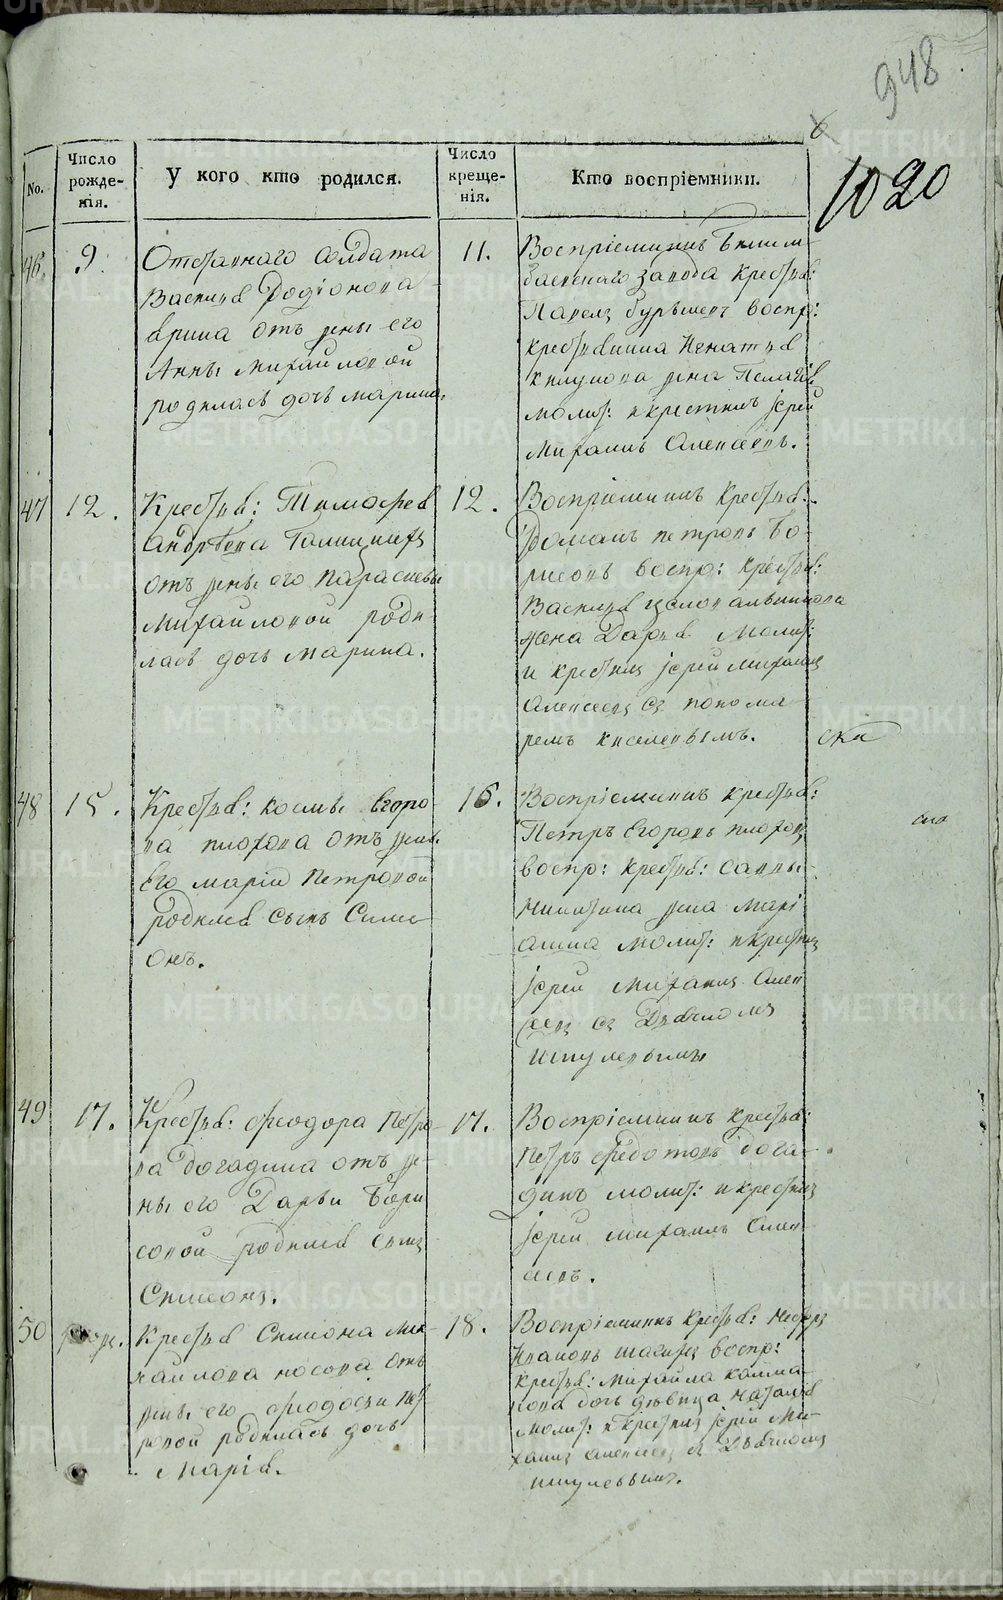 948
1020
No.
Число рожде-нія.
У кого кто родился.
Число креще-нія.
Кто воспріемники.
46.
9.
Отставнаго солдата
Василія Родіонова
отъ жены его
Анны Михайловой
родилась дочь Марина.
11.
Воспріемникъ Билим-
баевскаго завода крестьян:
Павелъ воспр:
крестьянина Игнатія
жена Пелагія
молит: и крестилъ іерей
Михаилъ Алексѣевъ.
47
12.
Крестьян: Тимофея
Андрѣева
отъ жены его Парасковьи
Михайловой роди-
лась дочь Марина.
12.
Воспріемникъ крестьян:
Романъ Петровъ Бо-
рисовъ воспр: крестьян:
Василія
жена Дарья молит:
и крестилъ іерей Михаилъ
Алексеевъ съ понома-
ремъ Киселевымъ.
48
15.
Крестьян: Космы Егоро-
ва Плохова отъ жены
его Маріи Петровой
родился сынъ Симе-
онъ.
16.
Воспріемникъ крестьян:
Петръ Егоровъ Плоховъ
воспр: крестьян: Саввы
Никитина жена Марі-
анна молит: и крестилъ
іерей Михаилъ Алек-
сеевъ съ Дьячкомъ
49
17.
Крестьян: Феодора Петро-
ва Богадина отъ же-
ны его Дарьи Бори-
совой родился сынъ
Симеонъ.
17.
Воспріемникъ крестьян:
Петръ Федотовъ Бога-
динъ молит: и крестилъ
іерей Михаилъ Алек-
сеевъ.
50
Крестьян Симиона Ми-
хаилова Носова отъ
жены его Феодосьи Пет-
ровой родилась дочь
Марія.
18.
Воспріемникъ крестьян:
Ивановъ воспр:
крестьян: Михайла
дочь дѣвица Наталія
молит: и крестилъ іерей Ми-
хаилъ Алексеевъ съ Дьячкомъ
METRIKI.GASO-URAL.RU